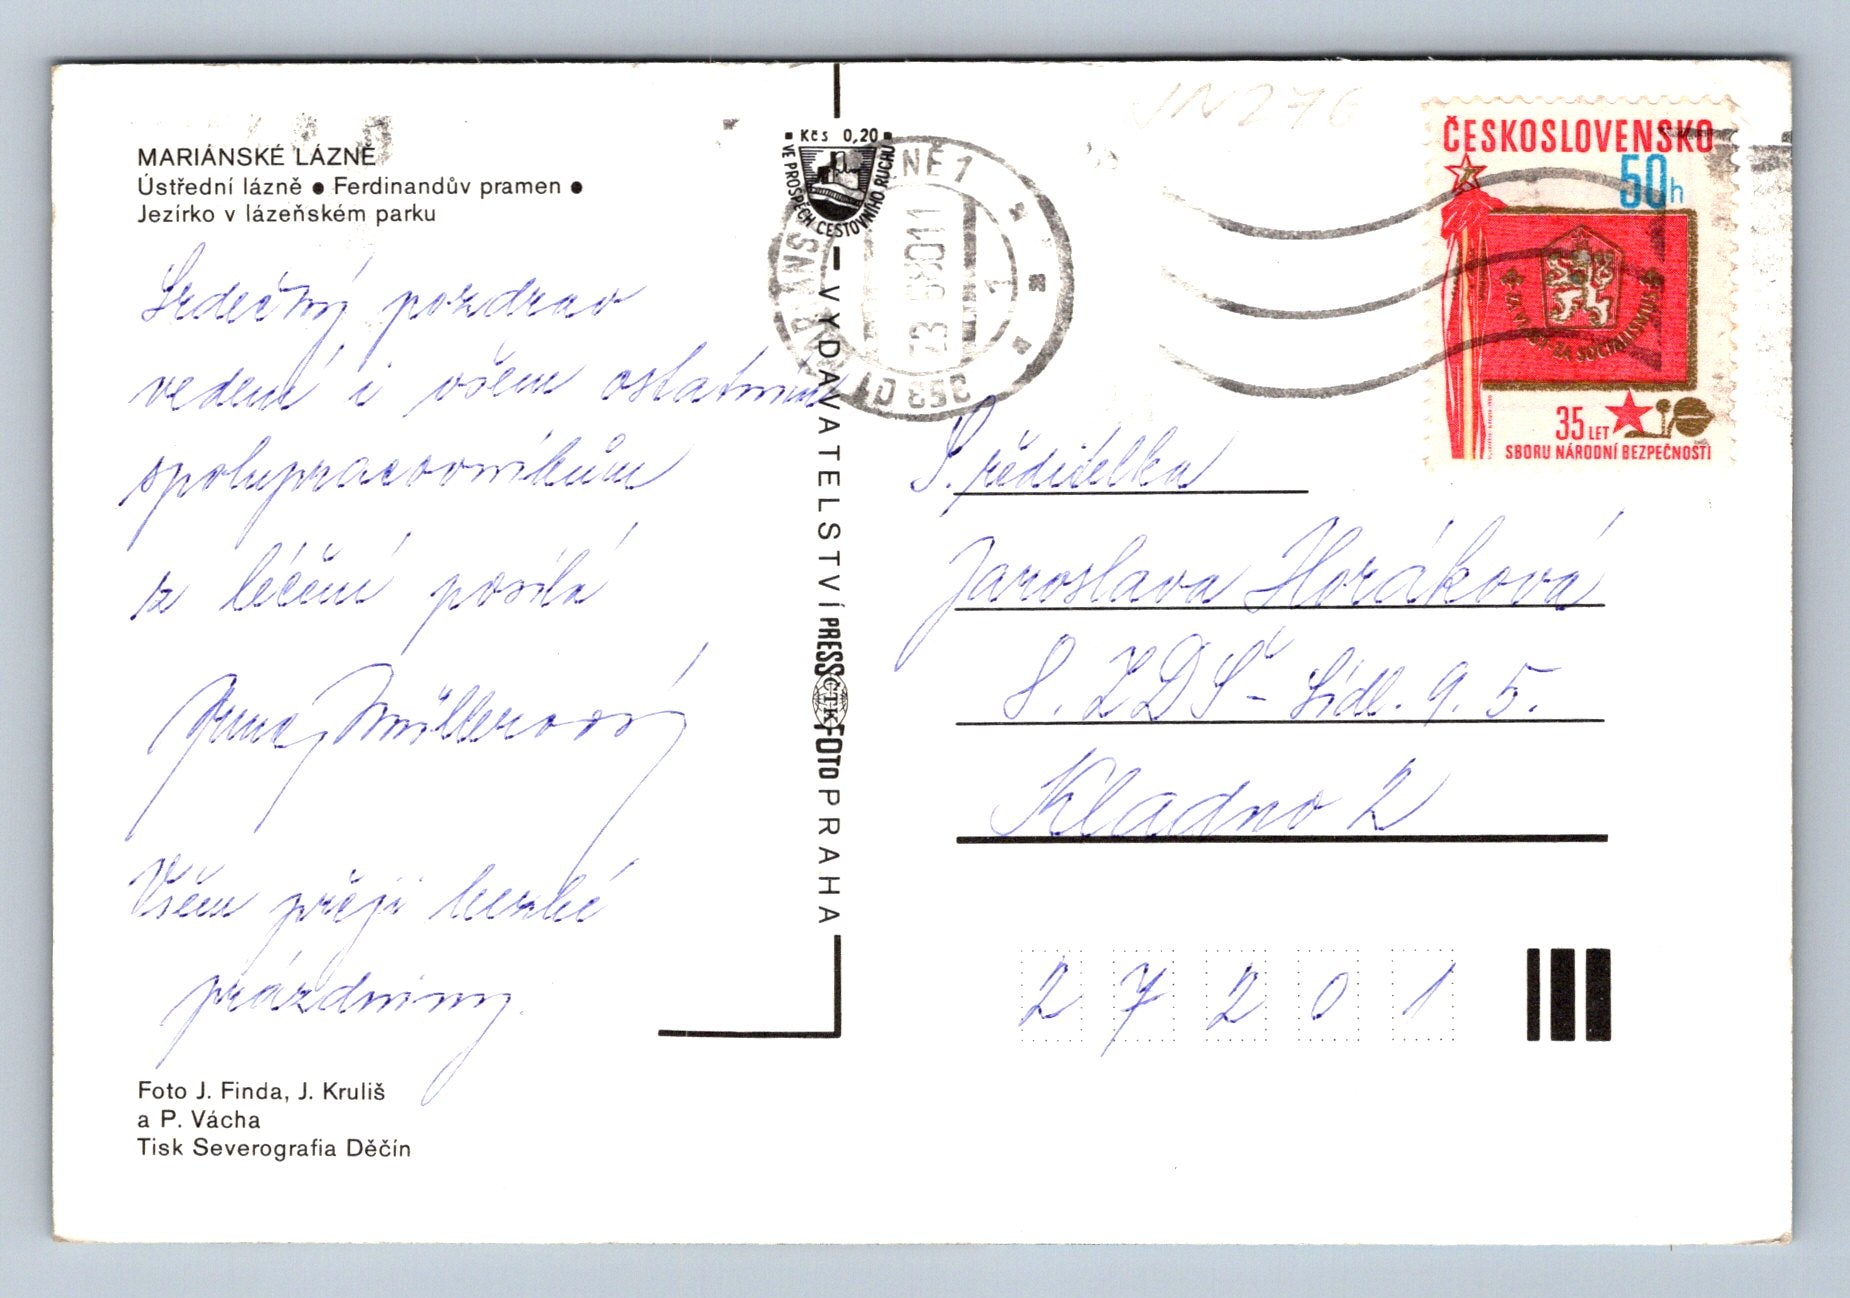 MARIÁNSKÉ LÁZNĚ
Ústřední lázně ● Ferdinandův pramen ●
Jezírko v lázeňském parku
Srdečný pozdrav
vedení i všem ostatním
spolupracovníkům
z léčení posílá
Anna Müllerová
Všem přeji hezké
prázdniny.
Foto J. Finda, J. Kruliš
a P. Vácha
Tisk Severografia Děčín
Kčs 0,20
VE PROSPĚCH CESTOVNÍHO RUCHU
VYDAVATELSTVÍ PRESSFOTO PRAHA
ČTK
LÁZNĚ 1
353 01
ČESKOSLOVENSKO
50h
ZA SOCIALISMUS
35 LET
SBORU NÁRODNÍ BEZPEČNOSTI
S. ředitelka
Jaroslava Horáková
8. ZDŠ - Sídl. 9. 5.
Kladno 2
27201